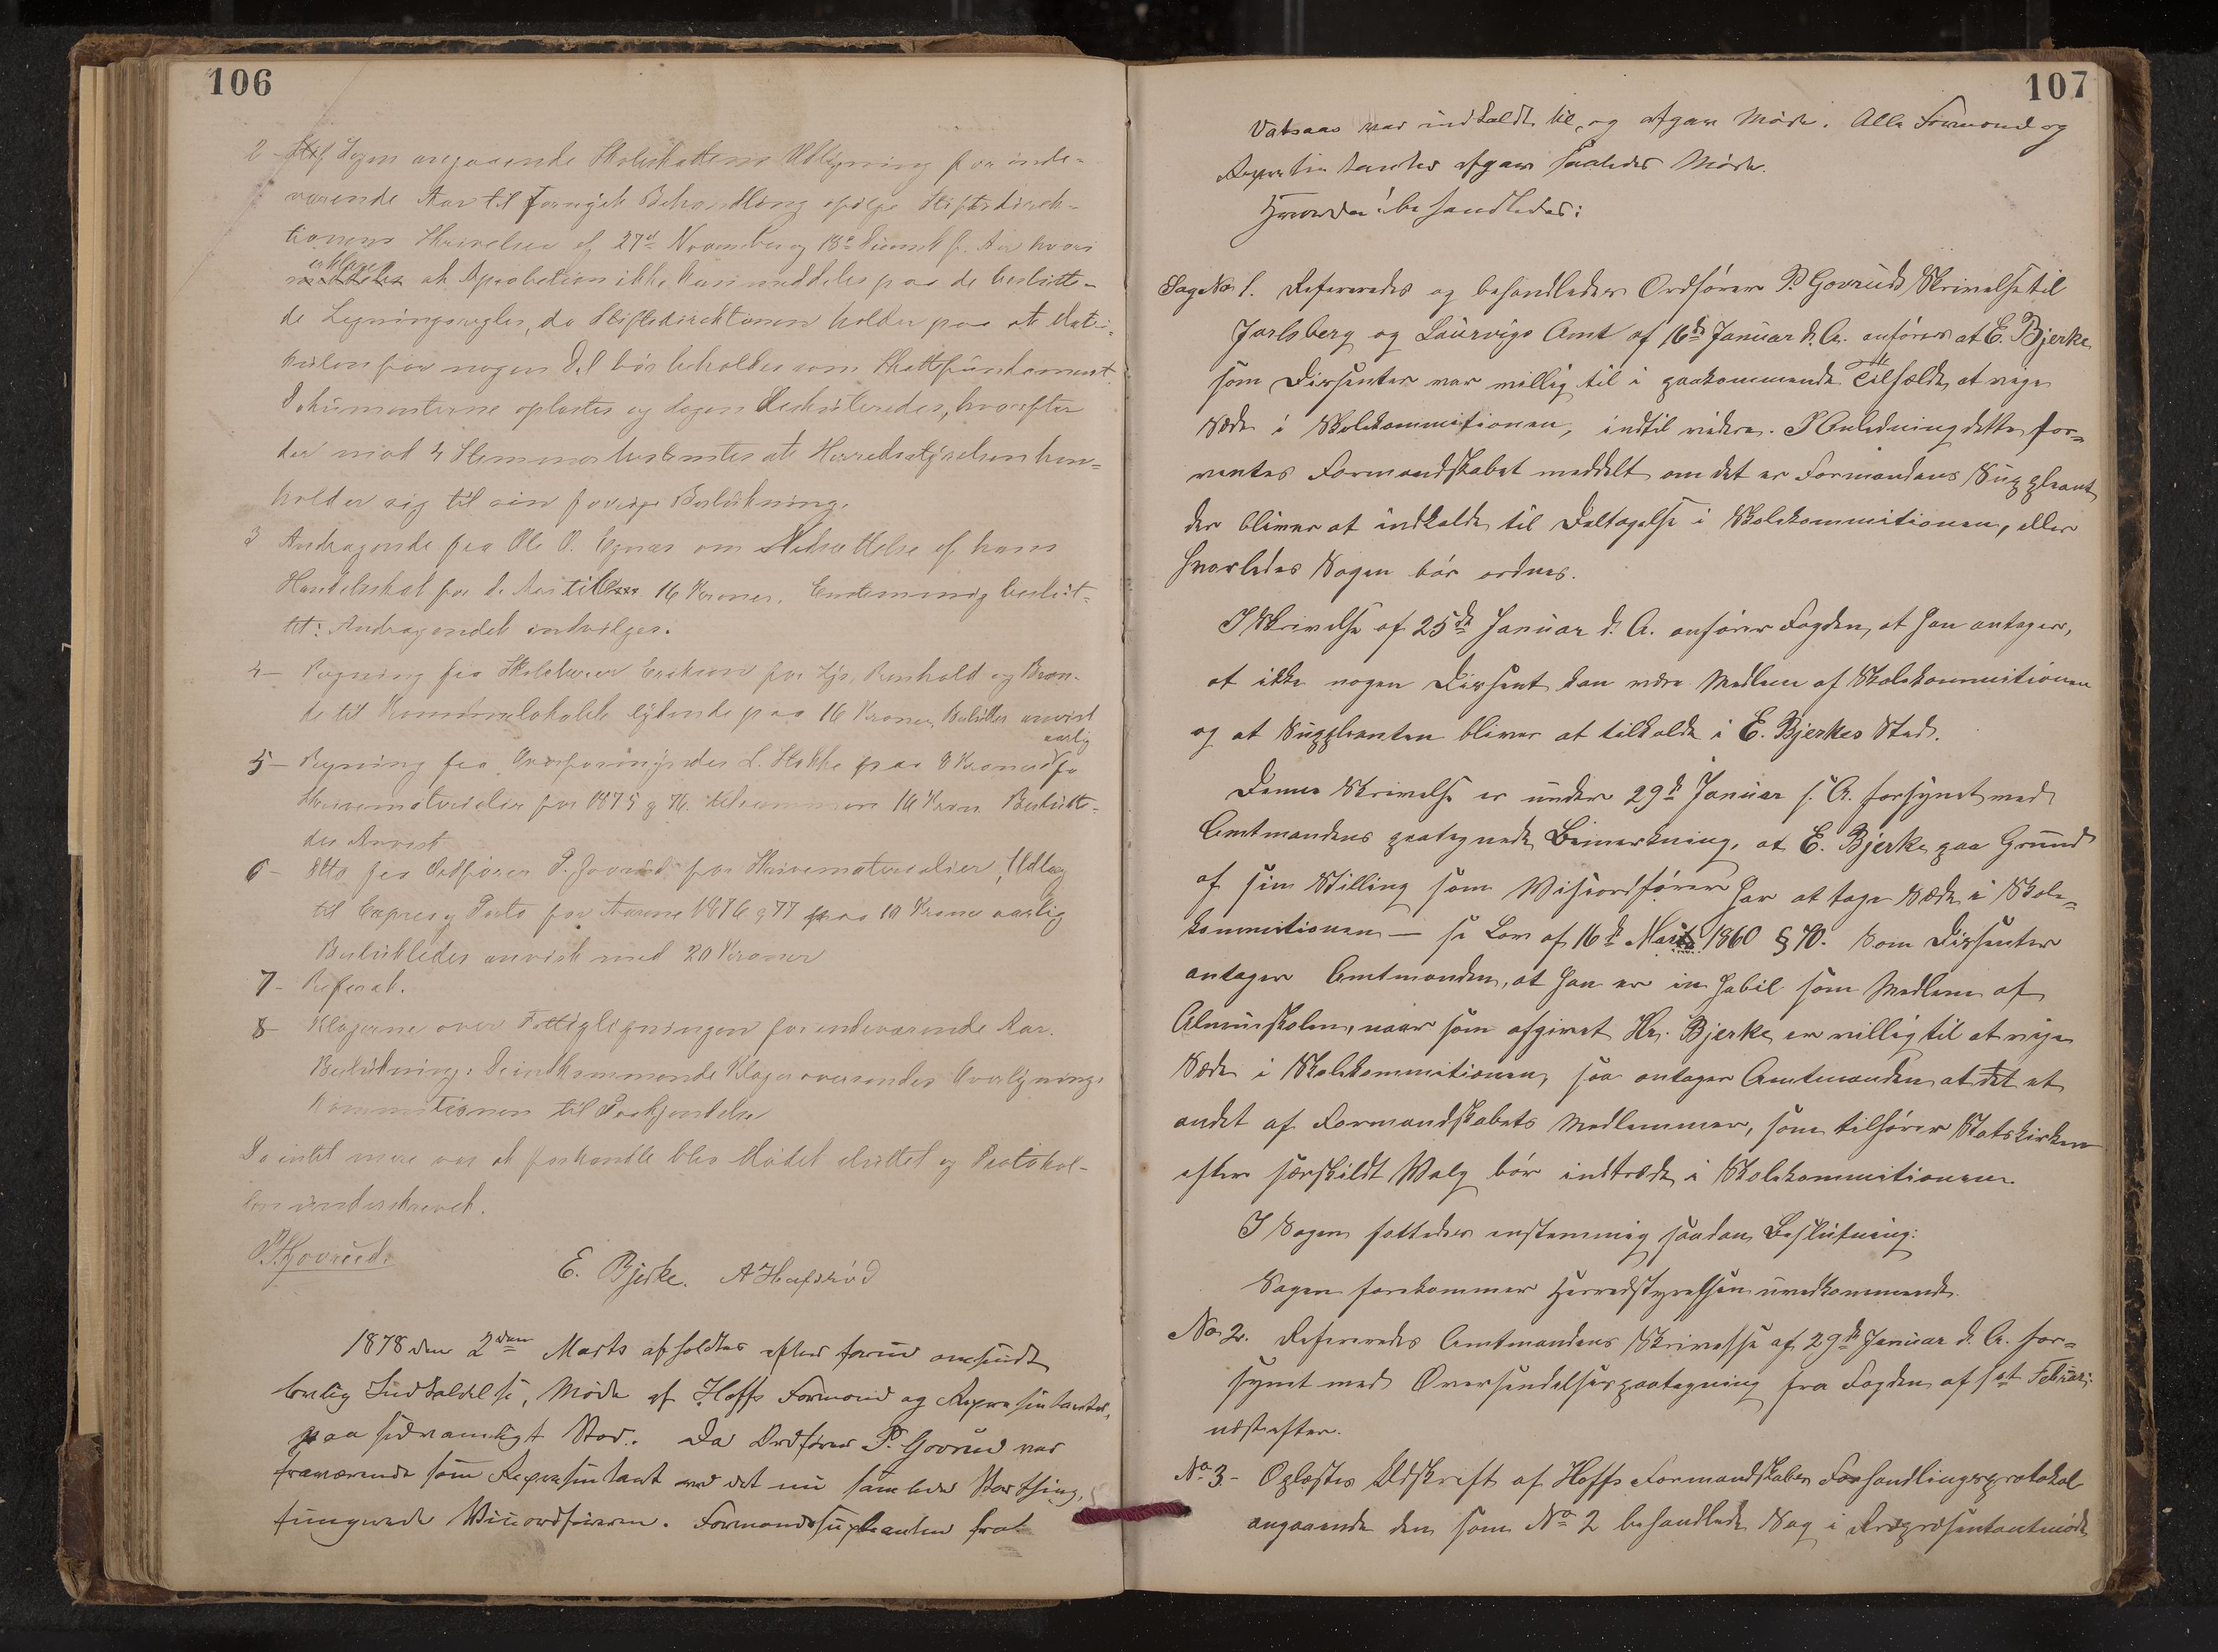 106
2 Sagen angaaende Skoleskattens Udligning for inde-
værende Aar til fornyet Behandling ifølge Stiftsdirek-
tionens Skrivelser af 27de November og 18de f. Aar hvori
erklæres
at Aprobation ikke kan meddeles paa de beslutte-
de Ligningsregler, da Stiftsdirektionen holder paa at Matri-
kulen for nogen Del bør beholdes som Skattefundament.
Dokumenterne oplæstes og Sagen diskuteredes, hvorefter
der mod 4 Stemmer bestemtes at Herredsstyrelsen hen-
holder sig til sin forrige Beslutning.
3 Andragende fra Ole O. om Nedsættelse af hans
Handelsskat for d. Aar til 16 Kroner. Enstemmig beslut-
tet: Andragendet indvilges.
4 Regning fra Skolelærer Erikson for Lys, Renhold og Bræn-
de til Kommunelokalet lydende paa 16 Kroner. Besluttes anvist
aarlig
5 Regning fra L. Hakke paa 8 Kroner for
Skrivematerialier for 1875 og 76 tilsammen 16 Kron. Beslutte-
des Anvist
6 Dto fra Ordfører P. Govrud for Skrivematerialier, Udlæg
til Expres og Porto for Aarene 1876 og 77 paa 10 Kroner aarlig
Beslutledes anvist med 20 Kroner
7 Referat.
8 Klagerne over Fattigligningen for indeværende Aar.
Beslutning: De indkommende Klager oversendes Overlignings
Kommitionen til Paakjendelse
Da intet mere var at forhandle blev Mødet sluttet og Protokol-
len underskrevet.
P. Govrud.
E. Bjerke. A Hafskød
1878 den 2den Marts afholdtes efter forud omsendt
lovlig Indkaldelse, Møde af Hoffs Formænd og Repræsentanter,
paa sidvanligt Sted. Da Ordfører P. Govrud var
fraværende som Repræsentant ved det nu samlede Storthing,
fungerede Viceordføreren. Formandssupleanten fra
107
var indkaldt til, og afgav Møde. Alle Formænd og
Repræsentanter afgav saaledes Møde.
Hvorda! behandledes:
Sag No 1. Refereredes og behandledes Ordfører P. Govruds Skrivelse til
Jarlsberg og Laurvigs Amt af 16de Januar d. A. anføres at E. Bjerke
som Dissenter var villig til i paakommende Tilfælde at vige
Sæde i Skolekommitionen, indtil videre. I Anledning dette for-
ventes Formandskabet meddelt om det er Formandens Suppleant
der bliver at indkalde til Deltagelse i Skolekommitionen, eller
hvorledes Sagen bør ordnes.
I Skrivelse af 25de Januar d. A. anfører Fogden, at han antager,
at ikke nogen Dissent kan være Medlem af Skolekommitionen
og at Suppleanten bliver at tilkalde i E. Bjerkes Sted.
Denne Skrivelse er under 29de Januar s. A. forsynet med
Amtmandens paategnede Bemærkning, at E. Bjerke paa Grund
af sin Stilling som Viseordfører har at tage Sæde i Skole-
kommitionen — se Lov af 16de Mai 1860 § 70. Som Dissenter
antager Amtmanden, at han er inhabil som Medlem af
Almueskolen, naar som afgivet Hr. Bjerke er villig til at vige
Sæde i Skolekommitionen, saa antager Amtmanden at det et
andet af Formandskabets Medlemmer, som tilhører Statskirken
efter særskildt Valg bør indtræde i Skolekommitionen.
I Sagen fattedes enstemmig saadan Beslutning:
Sagen forekommer Herredstyrelsen uvedkommende.
No 2. Refereredes Amtmandens Skrivelse af 29de Januar d. A. for-
synet med Oversendelsespaategning fra Fogden af 1ste Februar
næstefter.
No 3 - Oplæstes Udskrift af Hoffs Formandskabes Forhandlingsprotokol
angaaende den som No 2 behandlede Sag i Repræsentantmøde